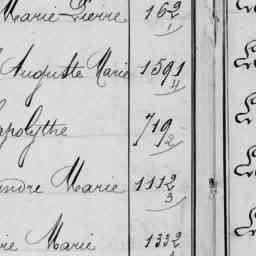 Marie Pierre 162
1
Auguste Marie 1591
4
apolythe 719
2
andre Marie 1112
3
re Marie 1332